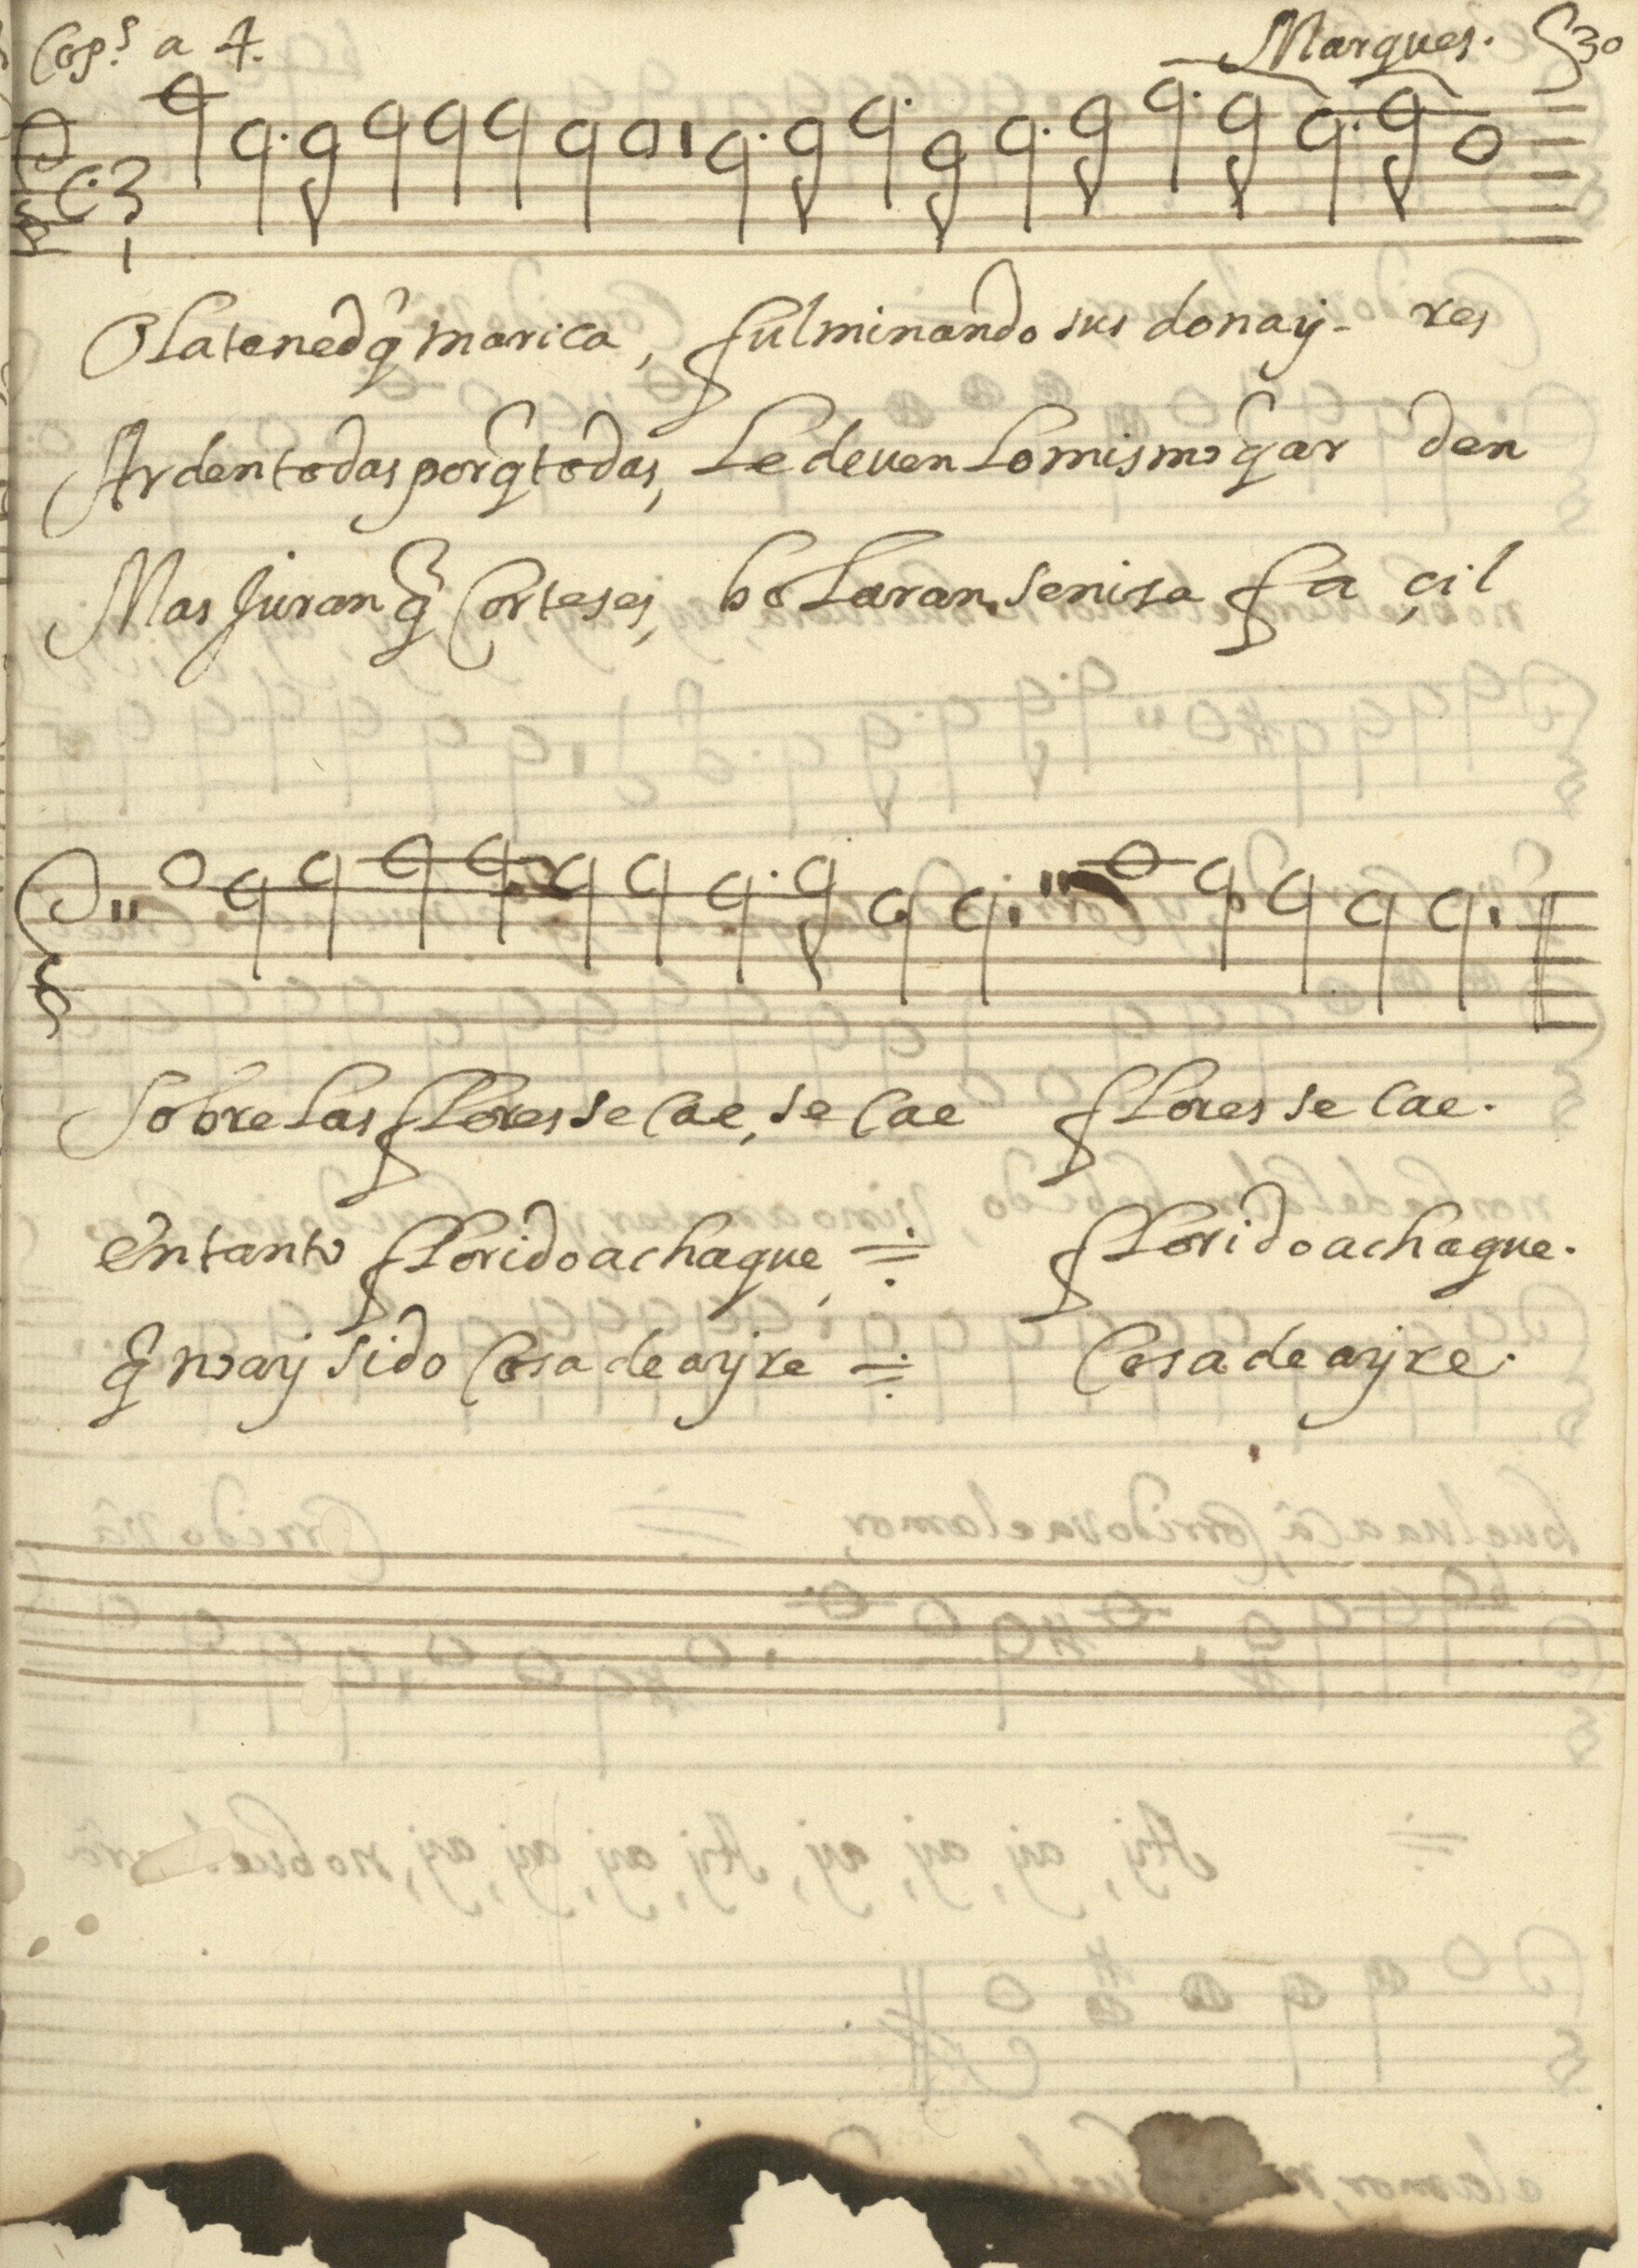 Cop.s a 4. Marques. 30
Ola tened q̃ marica, fulminando sus donay- res
Arden todas porq̃ todas, Le deven Lo mismo q̃ ar den
Mas Juran q̃ Corteses, bolaran senisa fa çil
Sobre Las fLores se Cae, se Cae fLores se Cae.
en tanto fLorido achaque, fLorido achaque.
q̃ no ay sido Cosa de ayre Cosa de ayre.